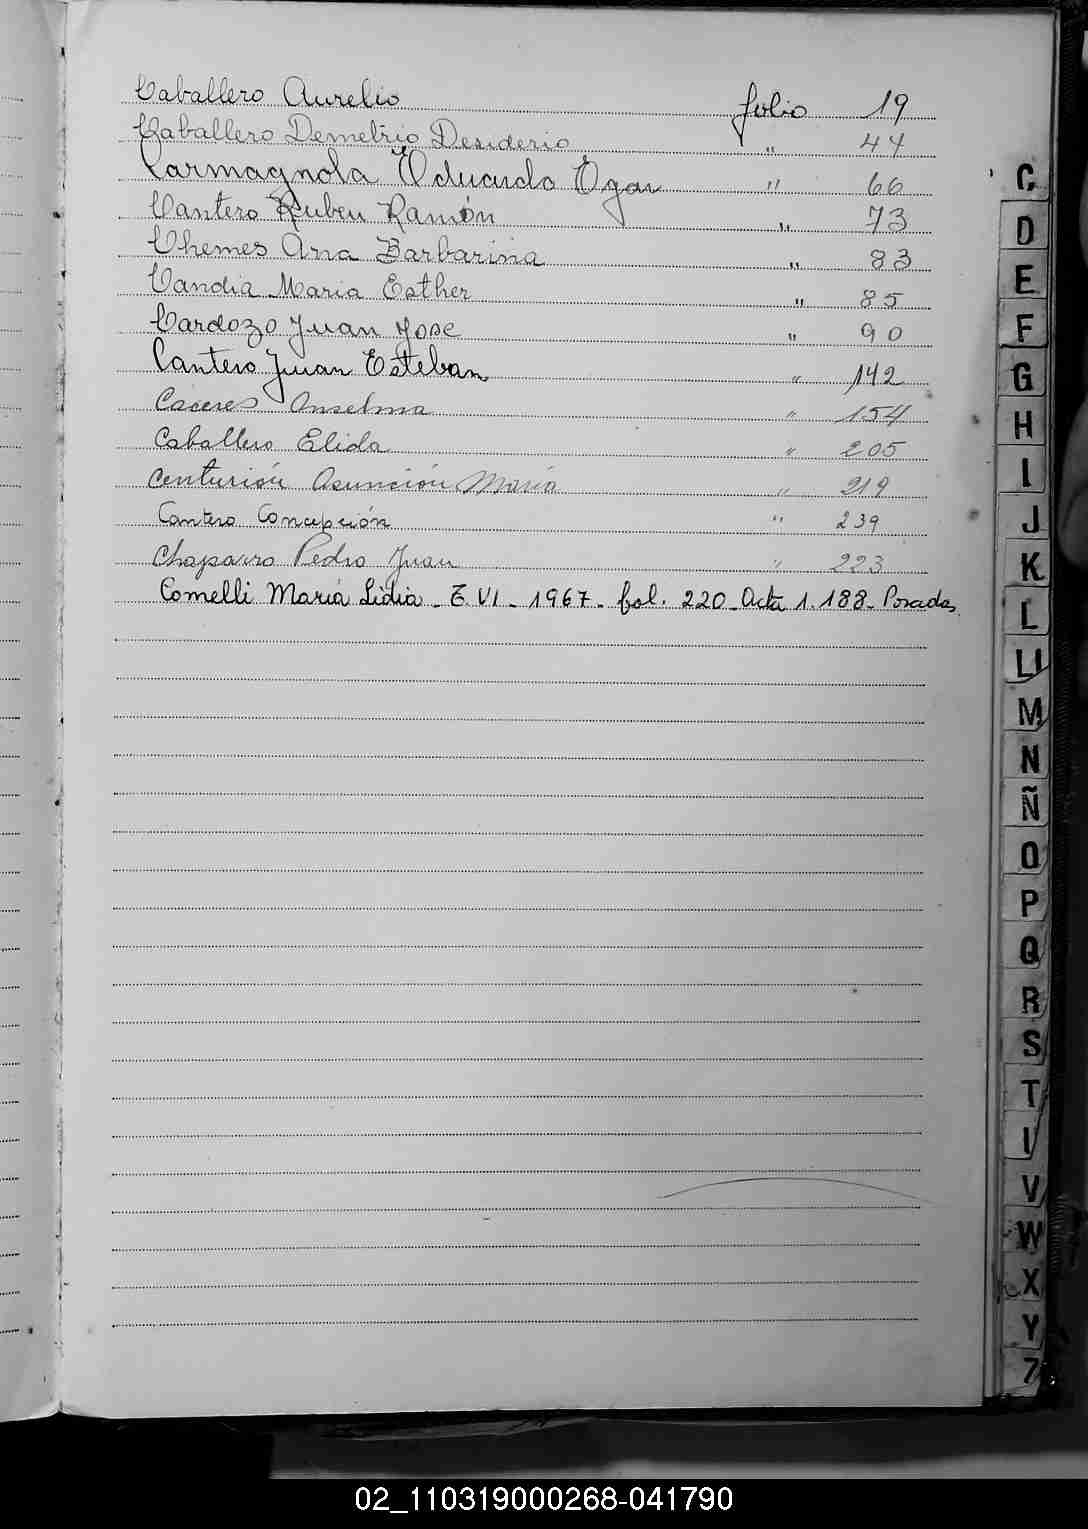 Caballero Aurelio folio 19
Caballero Demetrio Desiderio " 44
Carmagnola Eduardo Ogar " 66
Cantero Ruben Ramón " 73
Chemes Ana Barbarina " 83
Candia Maria Esther " 85
Cardozo Juan Jose " 90
Cantero Juan Esteban " 142
Caceres Anselma " 154
Caballero Elida " 205
Centurión Asunción María " 219
Cantero Concepción " 239
Chaparro Pedro Juan " 223
Comelli María Lidia - T. VI - 1967 - fol. 220 - Acta 1.188 - Posadas
C
D
E
F
G
H
I
J
K
L
Ll
M
N
Ñ
O
P
Q
R
S
T
V
W
X
Y
02_110319000268-041790